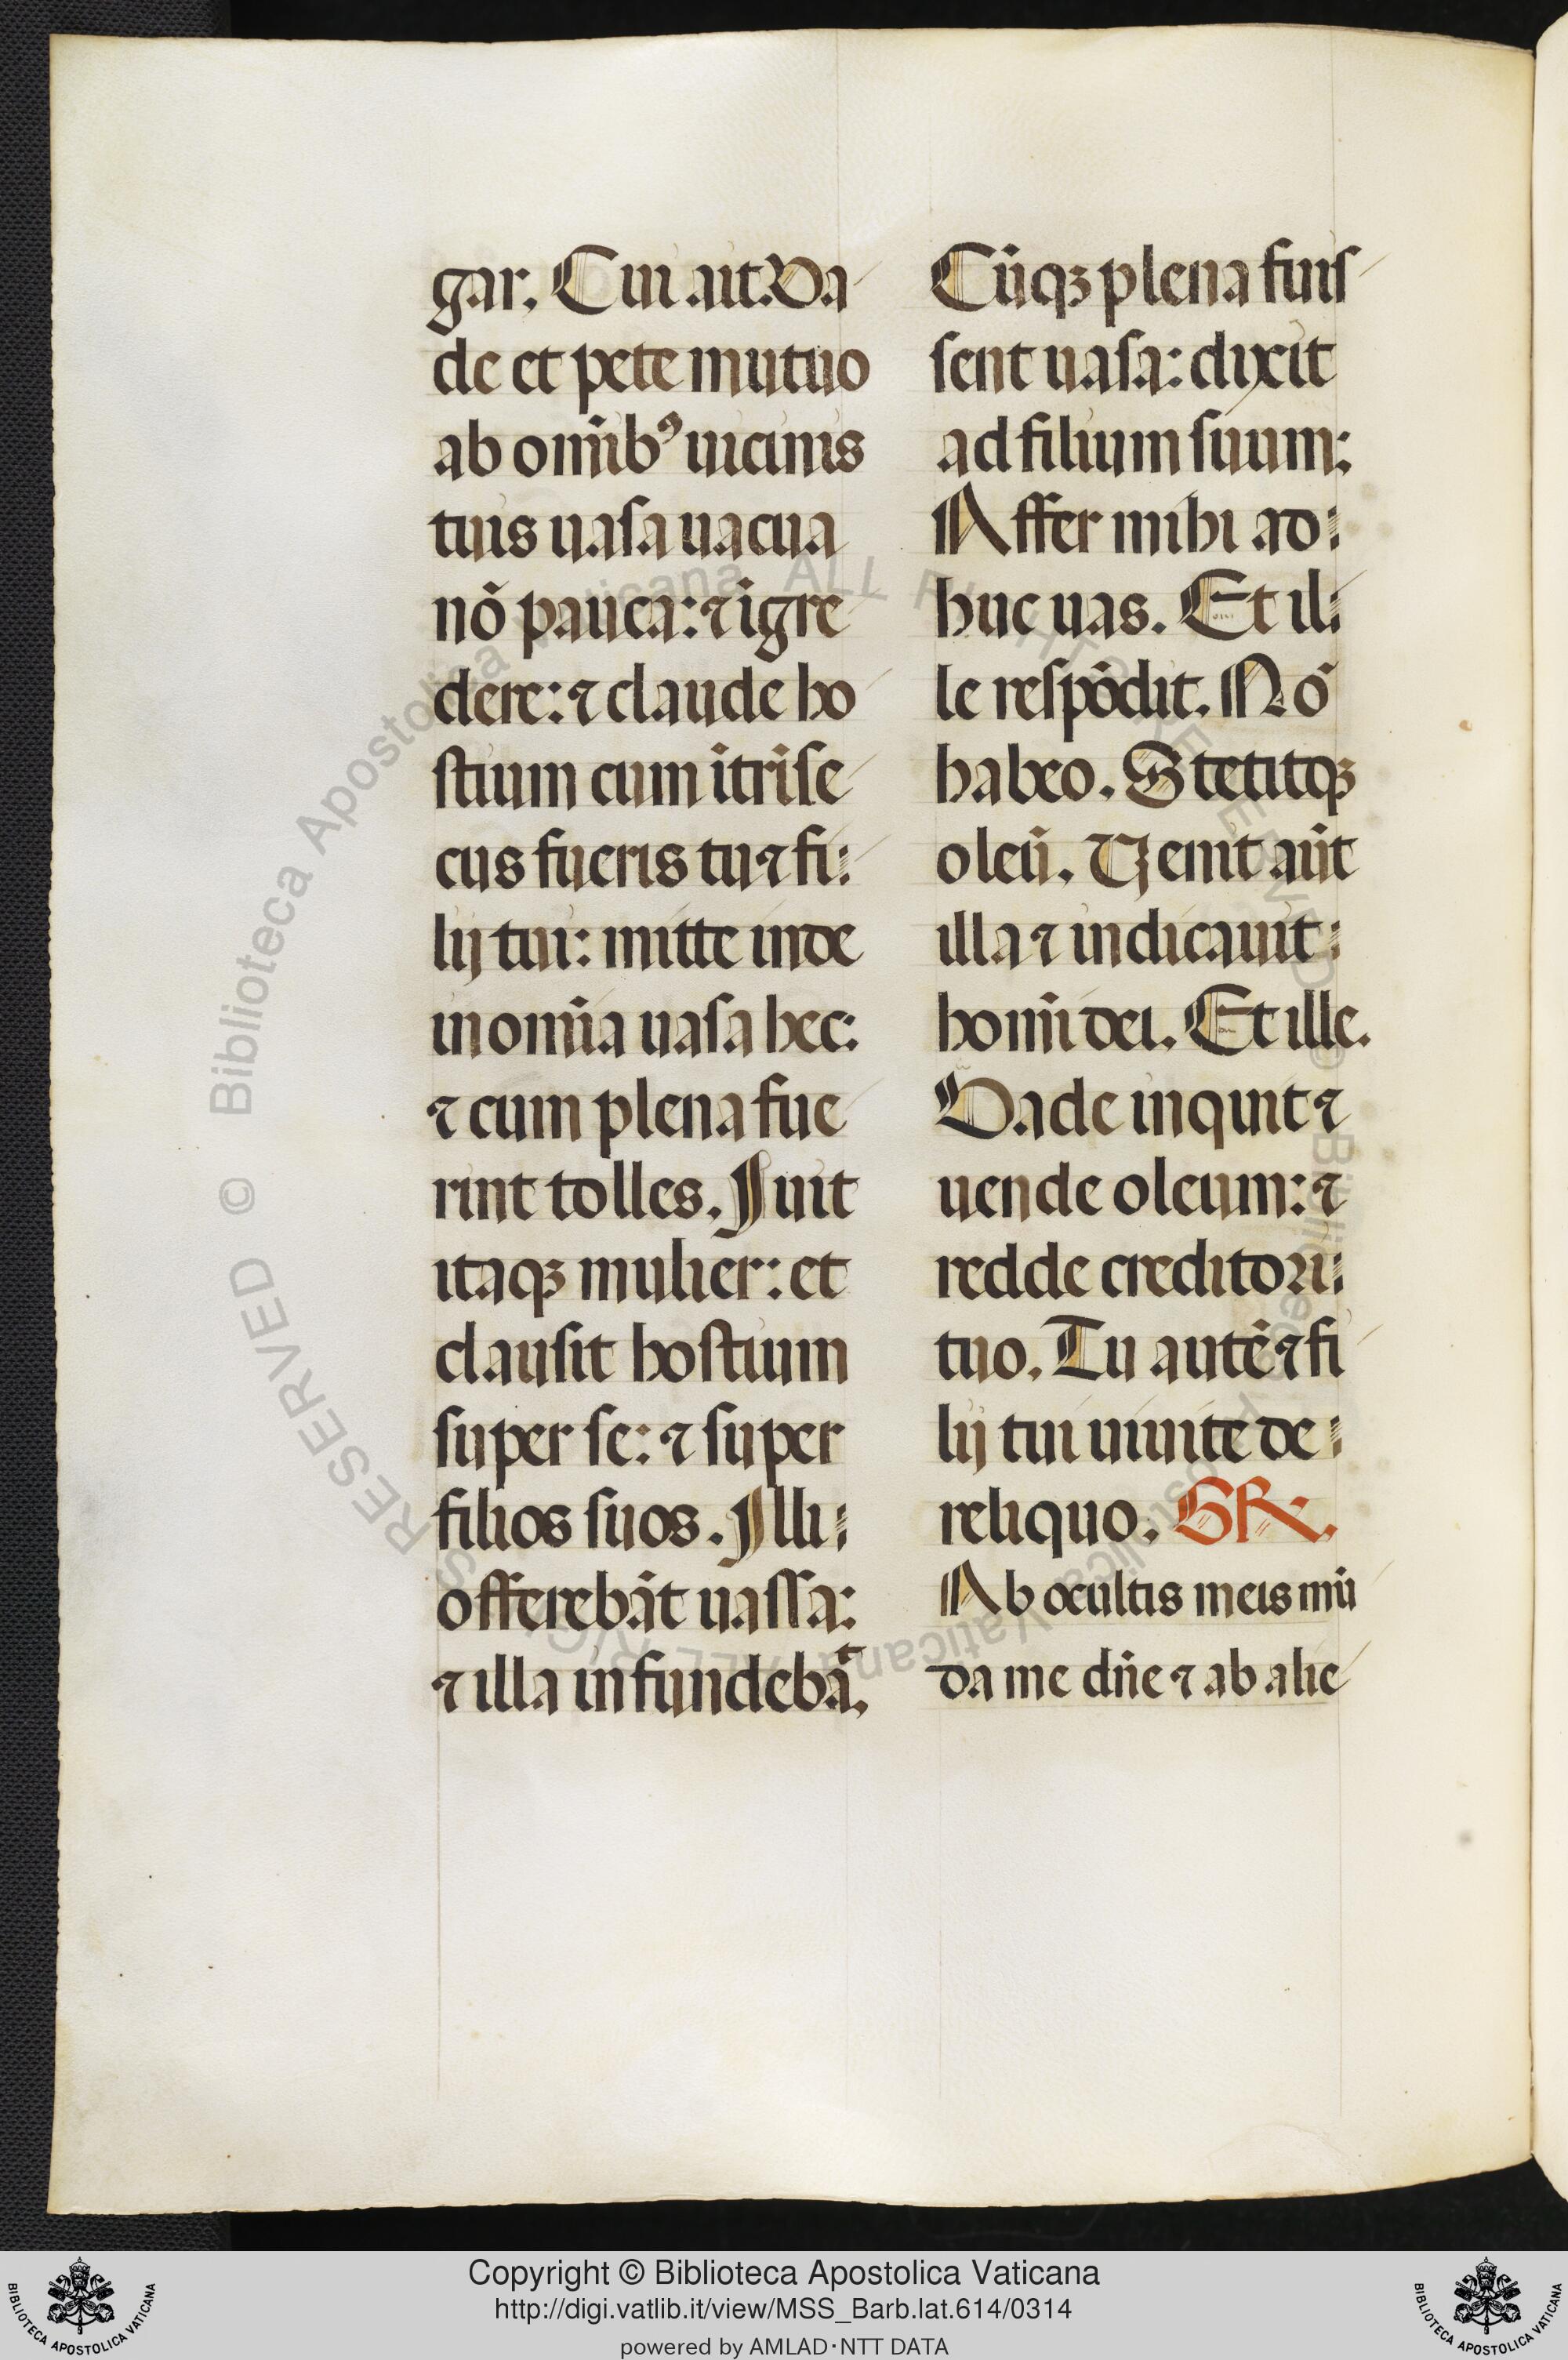 gar. Cui ait. Va
de et pete mutuo
ab om̄ib⁹ uicinis
tuis uasa uacua
nō pauca: ⁊ īgre
dere: ⁊ claude ho
stium cum ītrīse
cus fueris tu ⁊ fi:
lij tui: mitte inde
in om̄ia uasa hec:
⁊ cum plena fue
rint tolles. Iuit
itaqꝫ mulier: et
clausit hostium
super se: ⁊ super
filios suos. Illi:
offerebāt uassa:
⁊ illa infundebāt.
Cūqꝫ plena fuis
sent uasa: dixit
ad filium suum:
Affer mihi ad:
huc uas. Et il:
le respōdit. Nō
habeo. Stetitqꝫ
oleū. Uenit aūt
illa ⁊ indicauit:
homī dei. Et ille.
Vade inquit ⁊
uende oleum: ⁊
redde creditori:
tuo. Tu autē ⁊ fi
lij tui uiuite de:
reliquo. GR.
Ab ocultis meis mū
da me dn̄e ⁊ ab alie
Copyright © Biblioteca Apostolica Vaticana
http://digi.vatlib.it/view/MSS_Barb.lat.614/0314
powered by AMLAD·NTT DATA
BIBLIOTECA APOSTOLICA VATICANA
BIBLIOTECA APOSTOLICA VATICANA